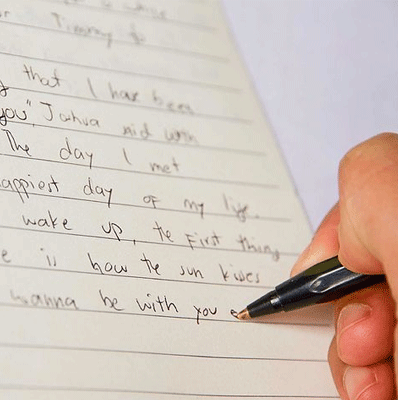 Timmy to
that I have been
you", Joshua said with
The day I met
appiest day of my life.
wake up, the first thing
e is how the sun kisses
wanna be with you e